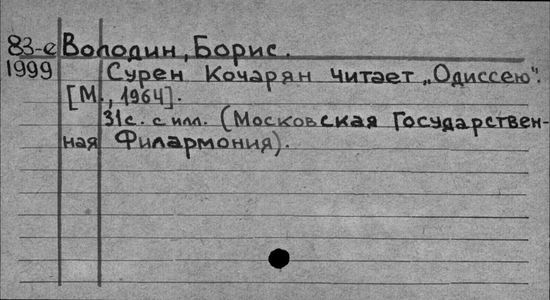 83-е Володин, Борис.
1999 Сурен Кочарян читает „Одиссею“.
[М., 1964].
31с. с илл. (Московская Государствен-
ная Филармония).